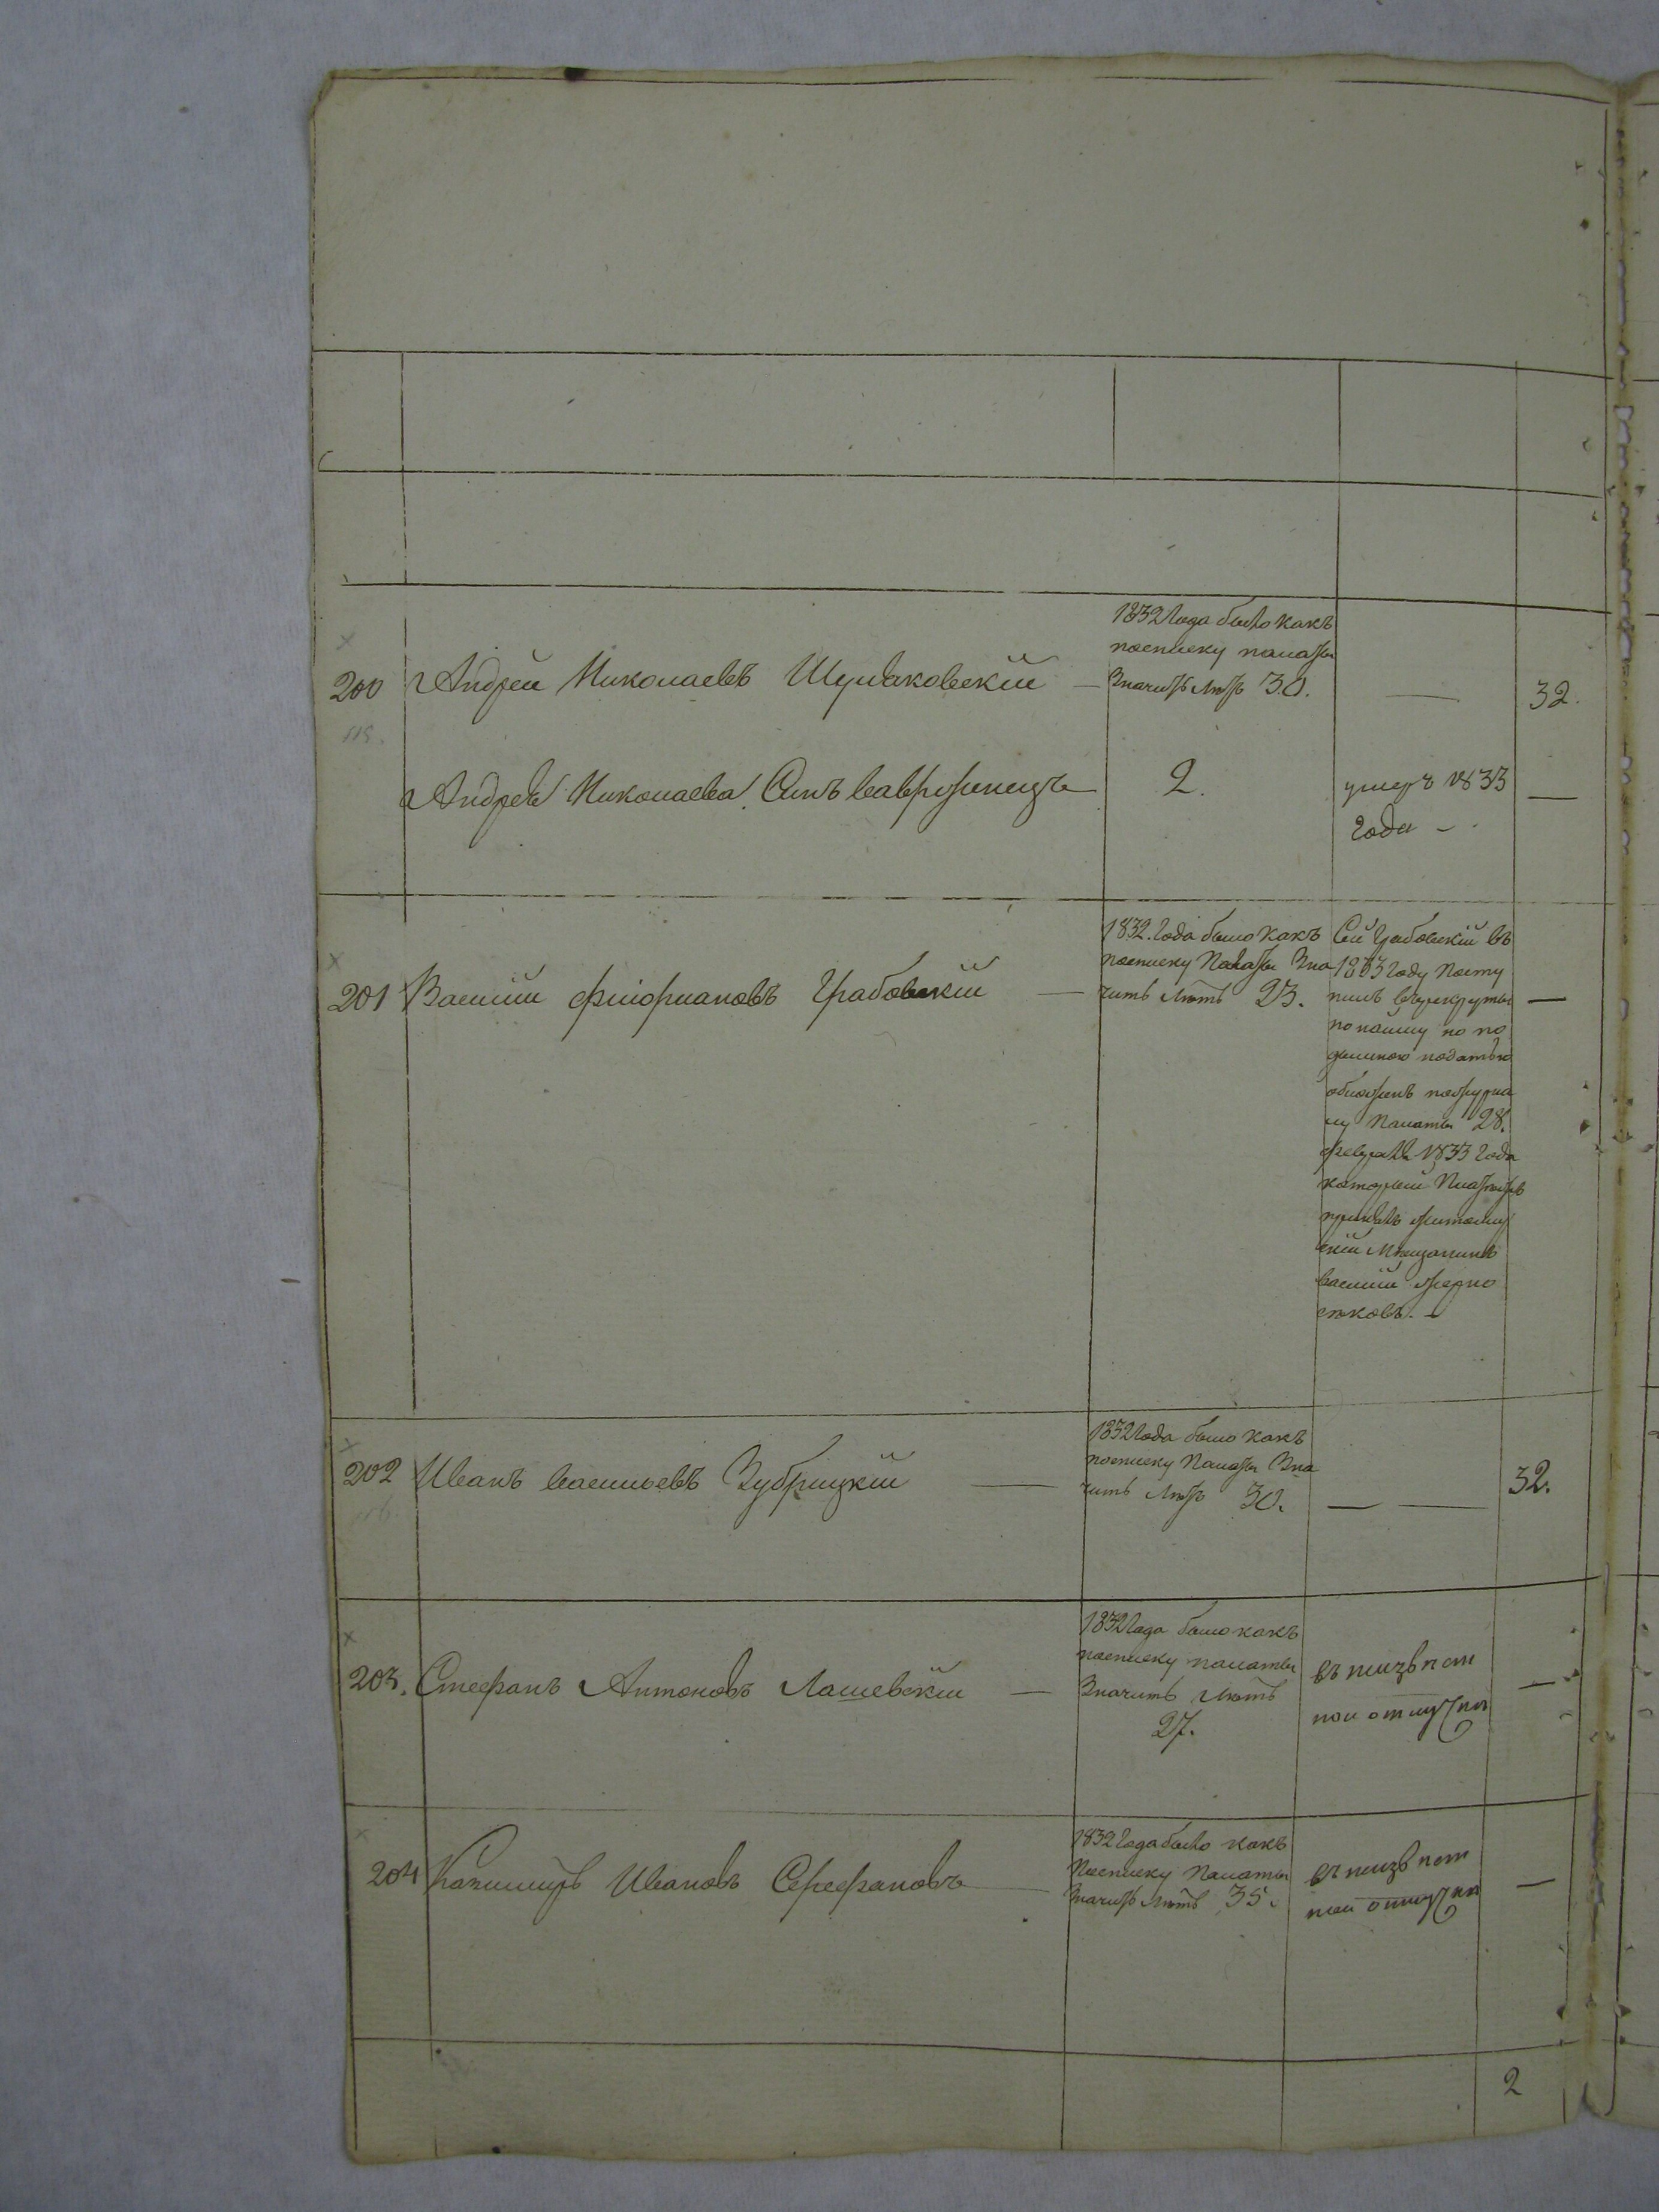 200
Андрей Николаевъ Шумаковскій —
1832 Года было какъ
посписку палаты
Значитъ лѣтъ 30.
—
32.
Андрея Николаева Сынъ Лаврентій —
2.
умеръ 1833
Года —
—
201
Василій Флоріановъ Грабовскій —
1832. Года было какъ
посписку Палаты Зна
читъ лѣтъ 23.
Сей Грабовскій въ
1833 Году Посту
пилъ въ рекруты
по найму но по
душною податью
обложенъ
Палаты 28.
февраля 1833 Года
которой Платежъ
принялъ Житомир
скій Мѣщанинъ
Василій
—
202
Иванъ Васильевъ Зубрицкій —
1832 Года было какъ
посписку Палаты Зна
читъ лѣтъ 30.
— —
32.
203.
Стефанъ Антоновъ Лашевскій —
1832 Года было какъ
посписку палаты
Значитъ лѣтъ
27.
въ неизвѣст
ной отлучки
—
204
Казимиръ Ивановъ Стефановъ —
1832 Года было какъ
Посписку Палаты
Значитъ лѣтъ 35.
въ неизвѣст
ной отлучки
—
2